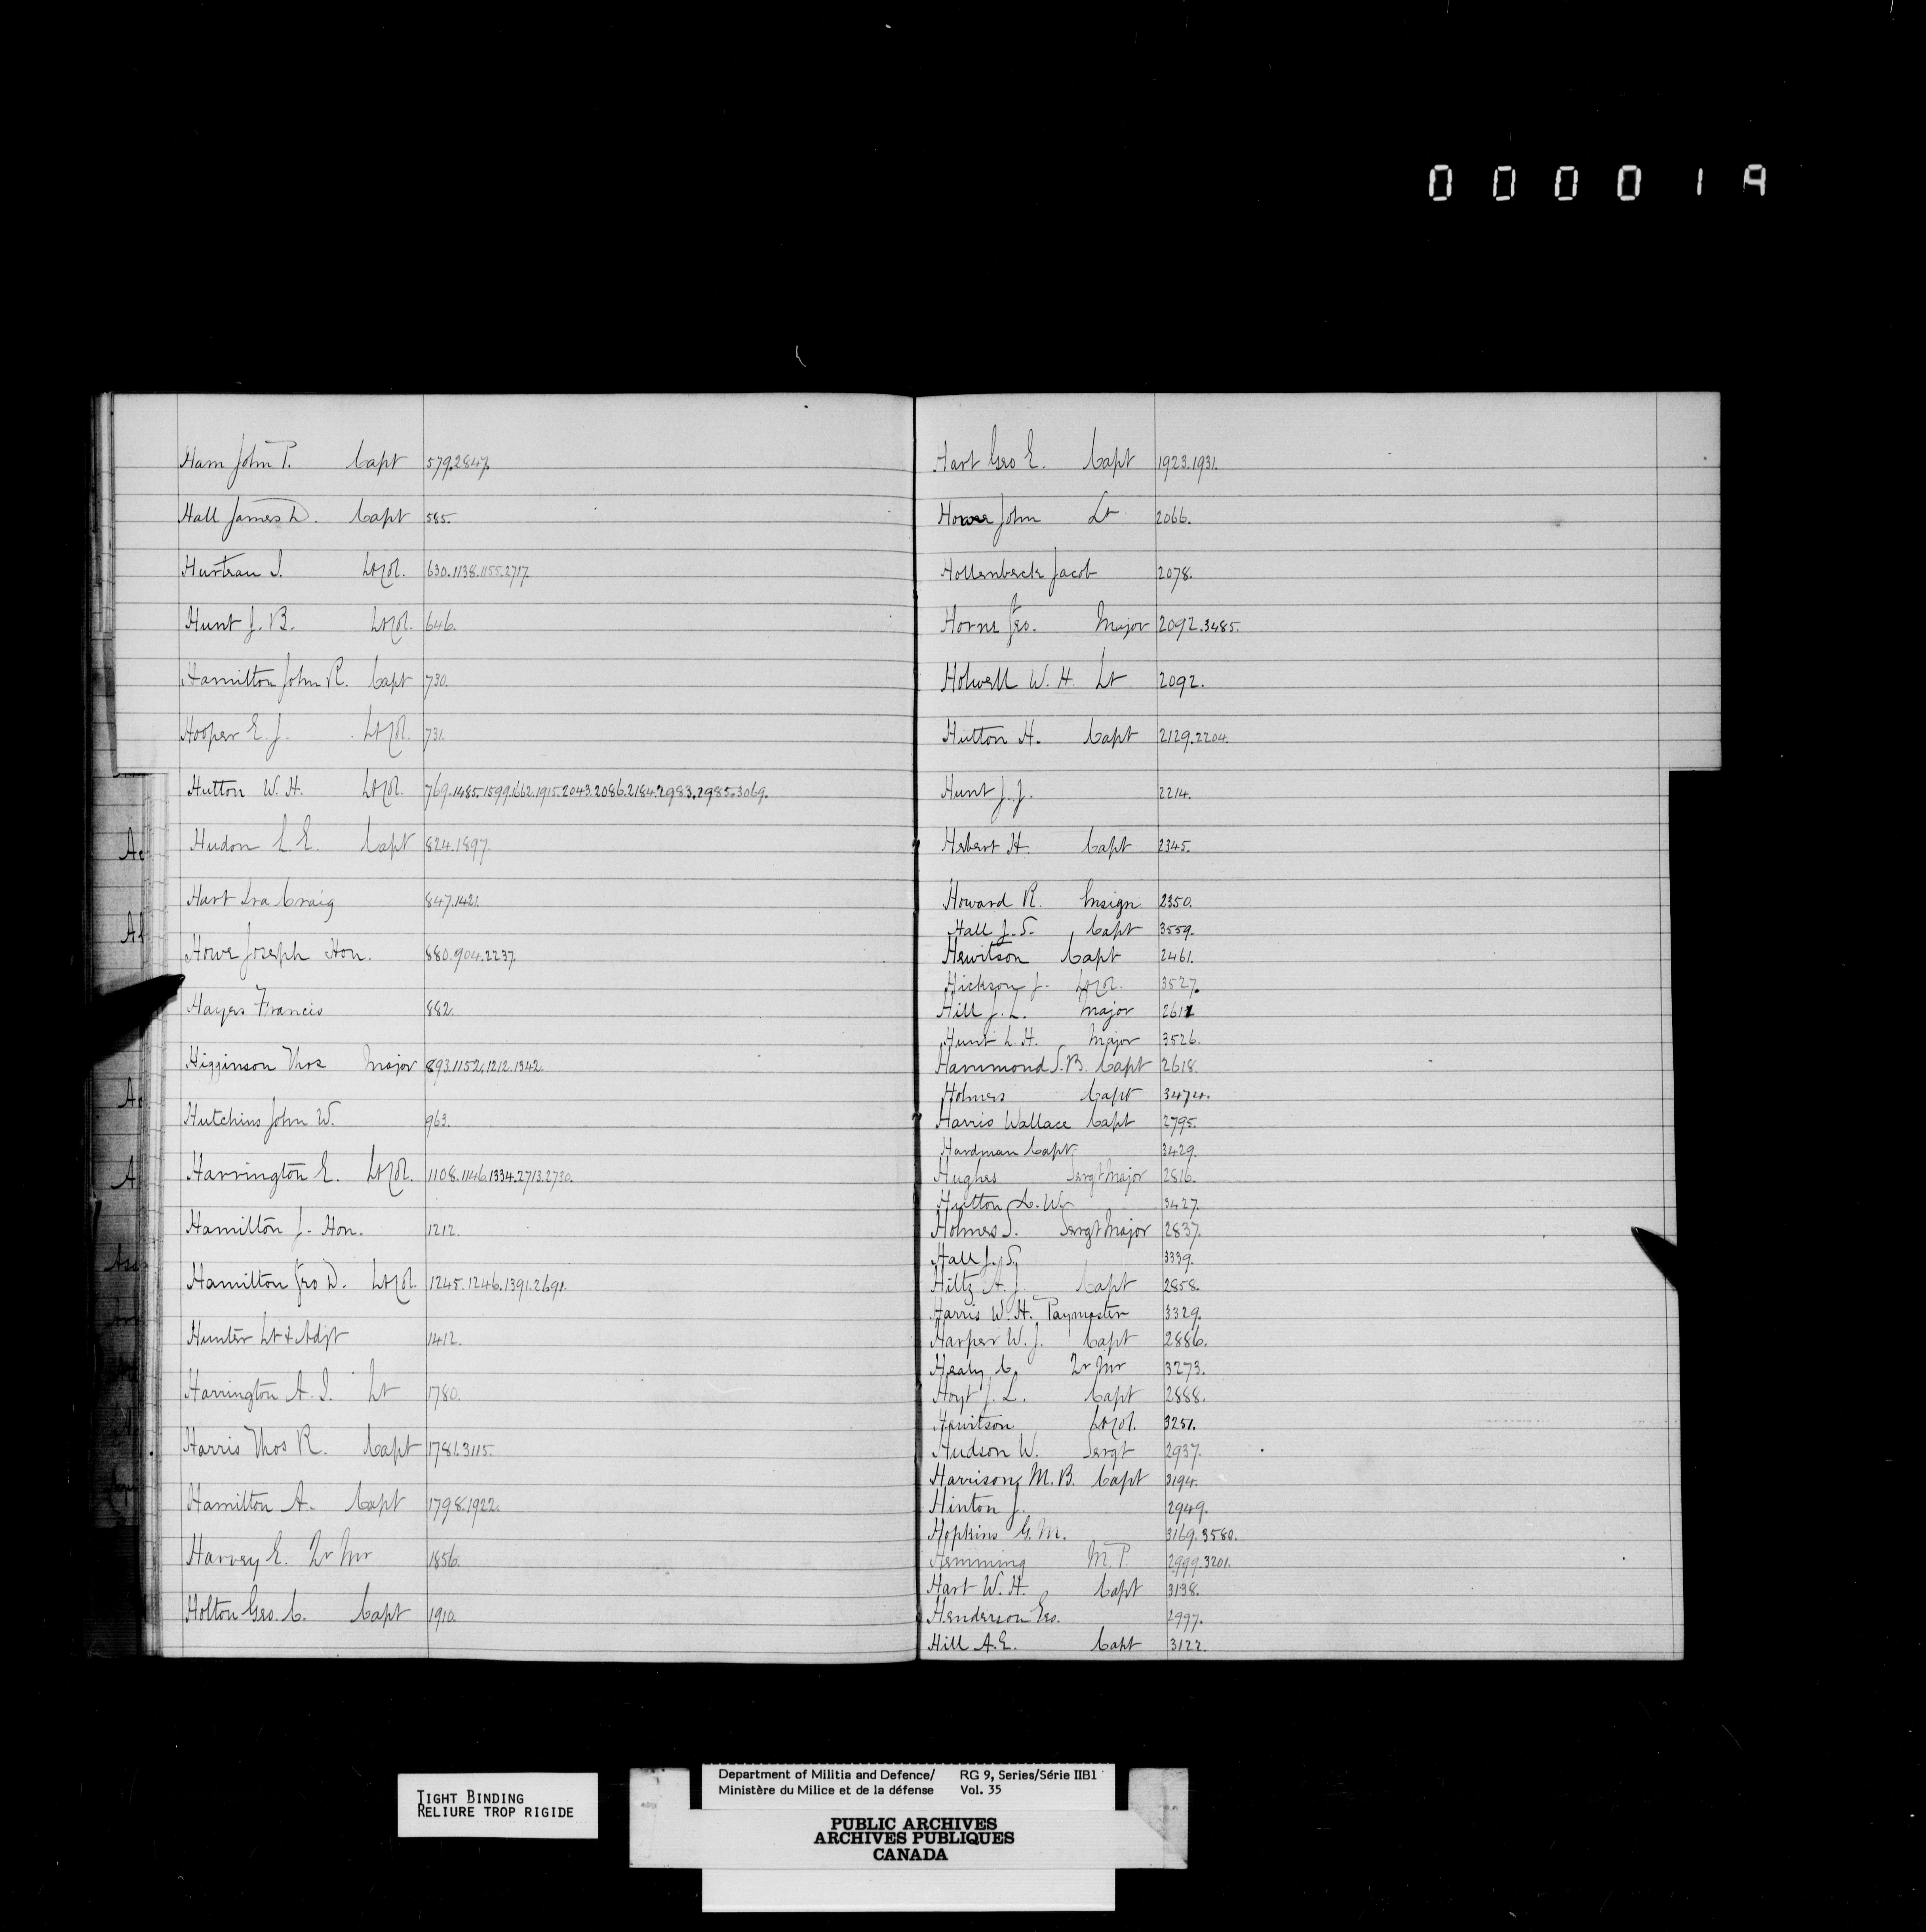 000019
Ham John P. Capt 579.2847.
Hall James D. Capt 585.
Hurteau I. Lt Col. 630.1138.1155.2717.
Hunt J. B. Lt Col. 646.
Hamilton John R. Capt 730.
Hooper E. J. Lt Col. 731.
Hutton W. H. Lt Col. 769.1485.1599.1662.1915.2043.2086.2184.2983.2985.3069.
Hudon L. E. Capt 824.1897.
Hart Ira Craig 847.1421.
Howe Joseph Hon. 880.904.2237.
Hayes Francis 882.
Higginson Thos Major 893.1152.1212.1342.
Hutchins John W. 963.
Harrington E. Lt Col. 1108.1146.1334.2713.2730.
Hamilton J. Hon. 1212.
Hamilton Geo D. Lt Col. 1245.1246.1391.2691.
Hunter Lt & Adjt 1412.
Harrington A. I. Lt 1780.
Harris Thos R. Capt 1781.3115.
Hamilton A. Capt 1798.1922.
Harvey E. Qr Mr 1856.
Holton Geo. C. Capt 1910.
Hart Geo E. Capt 1923.1931.
John Lt 2066.
Hollenbeck Jacob 2078.
Horne Geo. Major 2092.3485.
Holwell W. H. Lt 2092.
Hutton H. Capt 2129.2204.
Hunt J. J. 2214.
Hebert H. Capt 2345.
Howard R. Ensign 2350.
Hall J. S. Capt 3559.
Hewitson Capt 2461.
Hickson J. Lt Col. 3527.
Hill J. L. Major
Hunt L. H. Major 3526.
Hammond S. B. Capt 2618.
Holmes Capt 3474.
Harris Wallace Capt 2795.
Hardman Capt 3429.
Hughes Sergt Major 2816.
Hutton L. W. 3427.
Holmes S. Sergt Major 2837.
Hall J. S. 3339.
Hiltz A. J. Capt 2858.
Harris W. H. Paymaster 3329.
Harper W. J. Capt 2886.
Healy C. Qr Mr 3273.
Hoyt J. L. Capt 2888.
Hewitson Lt Col. 3251.
Hudson W. Sergt 2937.
Harrison M. B. Capt 3194.
Hinton J. 2949.
Hopkins G. M. 3169.3580.
Hemming M. P. 2999.3201.
Hart W. H. Capt 3138.
Henderson Geo. 2997.
Hill A. E. Capt 3122.
TIGHT BINDING
RELIURE TROP RIGIDE
Department of Militia and Defence/ RG 9, Series/Série IIB1
Ministère du Milice et de la défense Vol. 35
PUBLIC ARCHIVES
ARCHIVES PUBLIQUES
CANADA